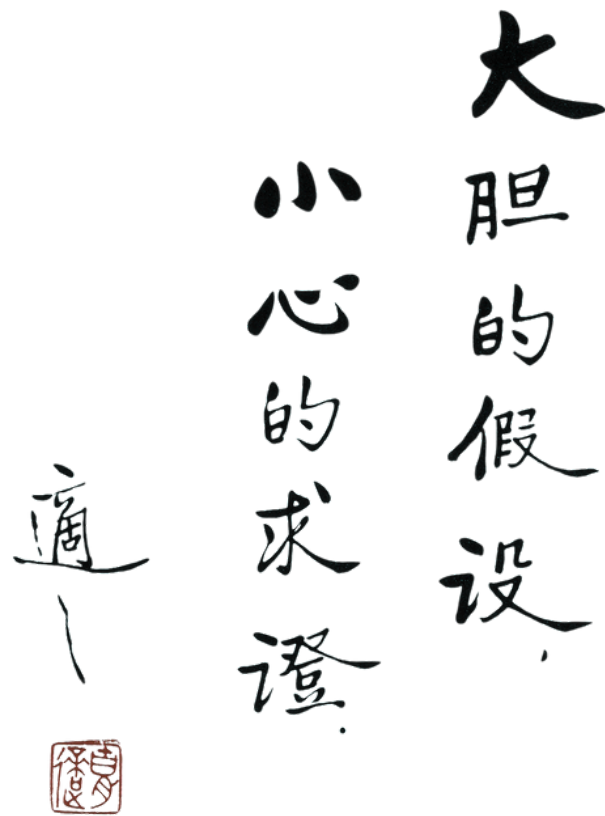 大胆的假设，
小心的求證．
適之
胡適